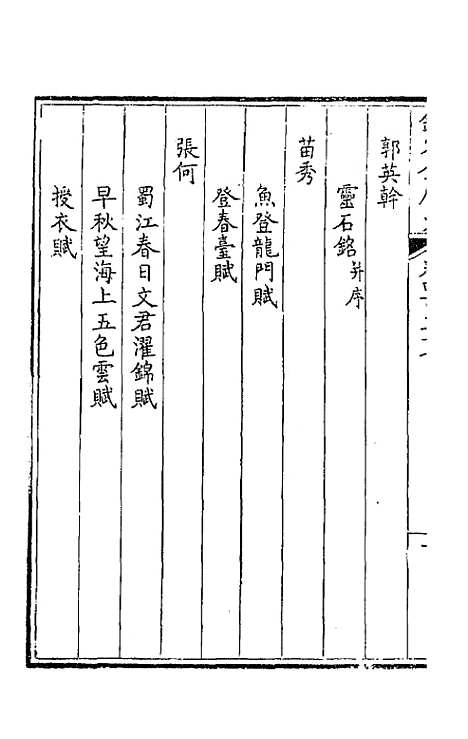 郭英幹
靈石銘并序
苗秀
魚登龍門賦
登春臺賦
張何
蜀江春日文君濯錦賦
早秋望海上五色雲賦
授衣賦